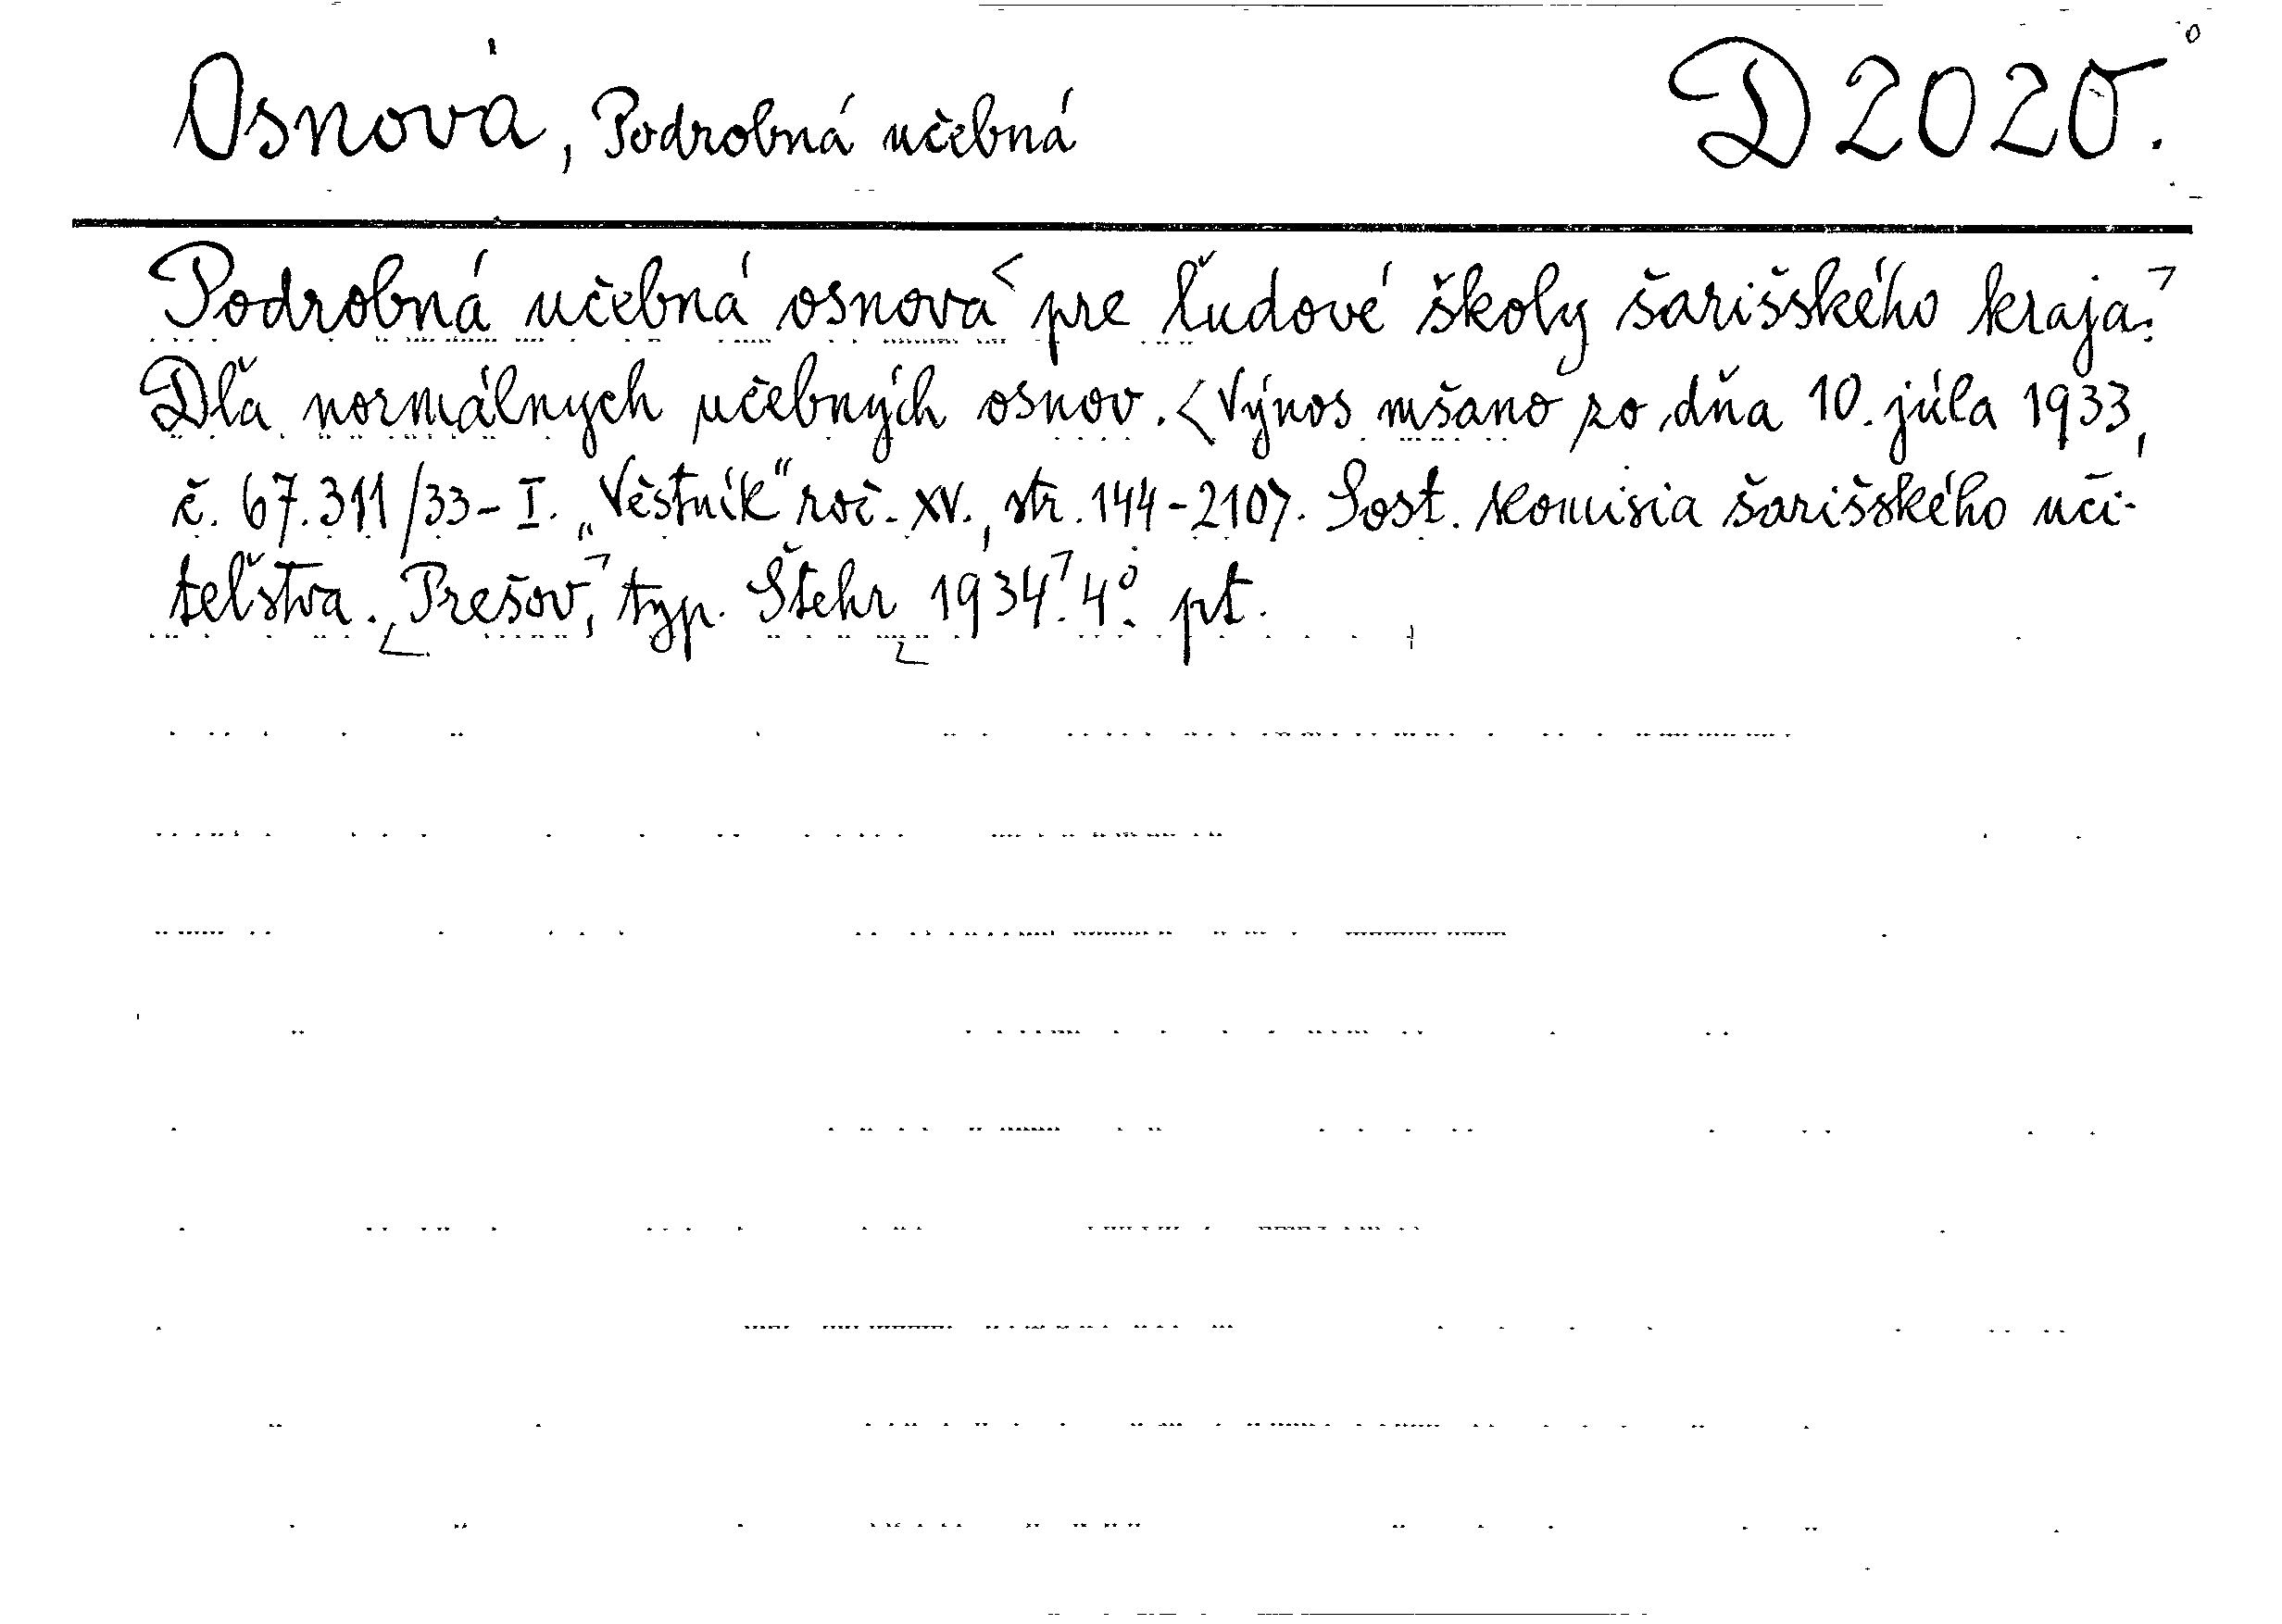 Osnova, Podrobná učebná D 2020.
Podrobná učebná osnova < pre ľudové školy šarišského kraja. ┐
Dľa normálnych učebných osnov. < Výnos mšano zo dňa 10. júla 1933,
č. 67.311/33-I. „Věstník“ roč. XV., str. 144-2107. Sost. komisia šarišského uči-
teľstva. Prešov, typ. Štehr 1934. 4°. pt.